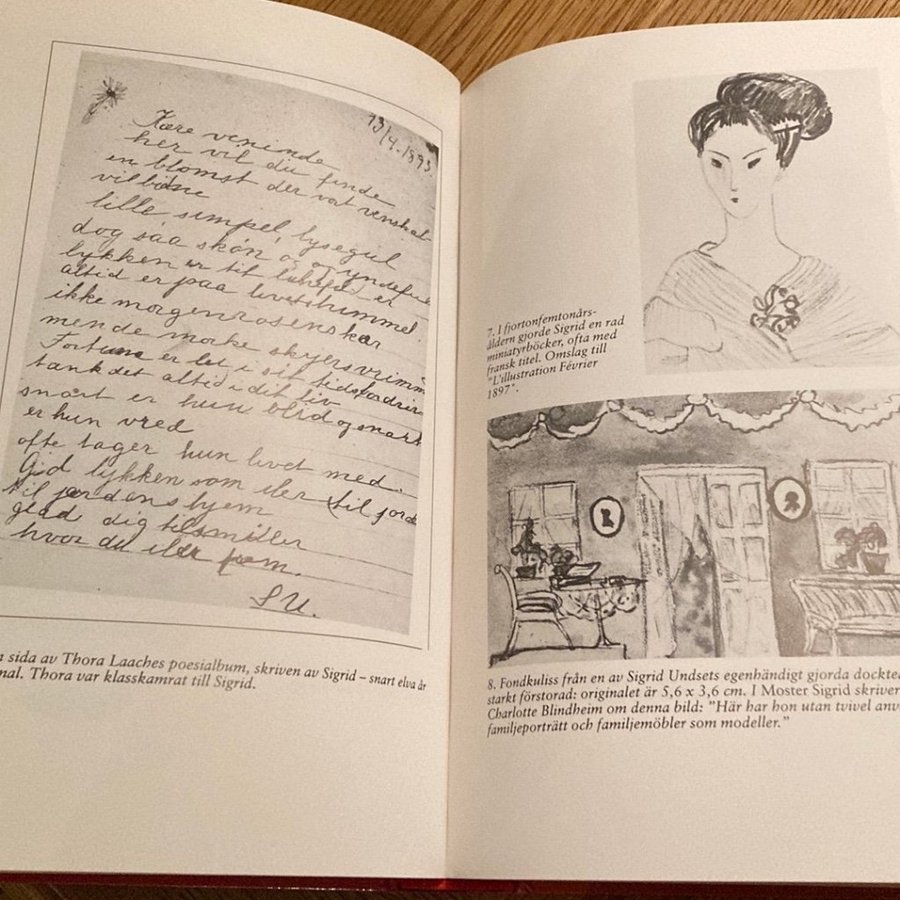 13/4.1893.
Kære veninde
her vil du finde
en blomst der var venskab-
lille simpel, lysegul
dog saa skön og
lykken er til er
altid er paa livets himmel
ikke morgenrosens skær
men de mørke skyers vrimm
Fortuna er let i sit
tænk det altid i dit liv
snart er hun blid og snart
er hun vred
ofte tager hun livet med.
Gid lykken som iler til jord
til jordens hjem
glad dig tilsmiler
hvor du iler frem.
S U.
n sida av Thora Laaches poesialbum, skriven av Sigrid – snart elva år
mal. Thora var klasskamrat till Sigrid.
7. I fjortonfemtonårs-
åldern gjorde Sigrid en rad
miniatyrböcker, ofta med
fransk titel. Omslag till
"L'illustration Février
1897".
8. Fondkuliss från en av Sigrid Undsets egenhändigt gjorda docktea
starkt förstorad: originalet är 5,6 x 3,6 cm. I Moster Sigrid skriver
Charlotte Blindheim om denna bild: "Här har hon utan tvivel anv
familjeporträtt och familjemöbler som modeller."